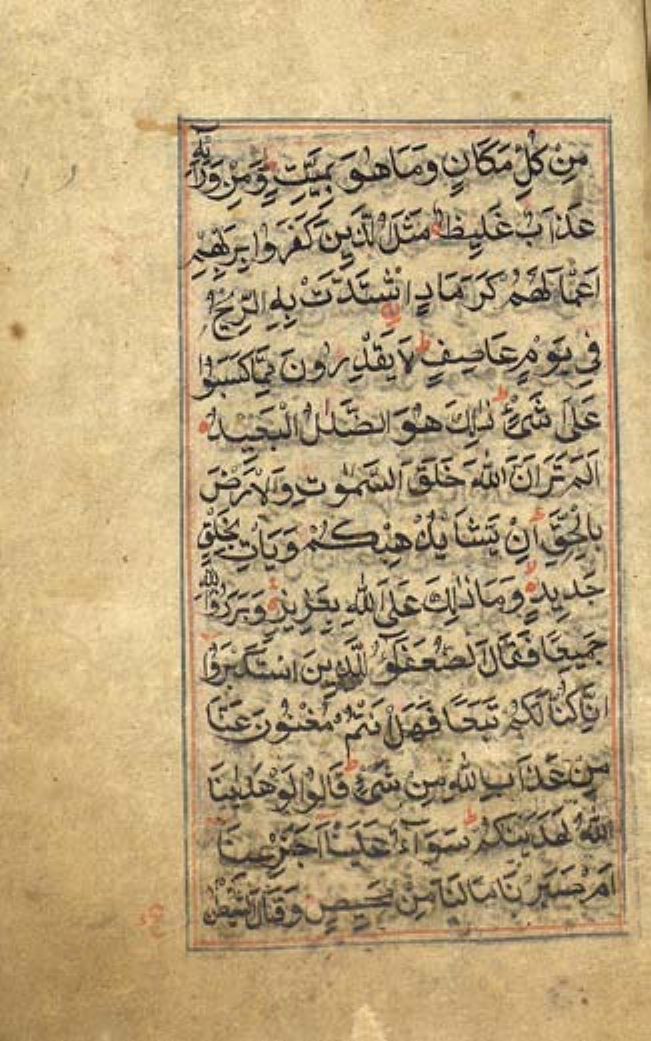 مِنْ كُلِّ مَكَانٍ وَمَا هُوَ بِمَيِّتٍ وَمِنْ وَرَائِهِ
عَذَابٌ غَلِيظٌ مَثَلُ الَّذِينَ كَفَرُوا بِرَبِّهِمْ
اَعْمَالُهُمْ كَرَمَادٍ اشْتَدَّتْ بِهِ الرِّيحُ
فِي يَوْمٍ عَاصِفٍ لَا يَقْدِرُونَ مِمَّا كَسَبُوا
عَلَى شَيْءٍ ذٰلِكَ هُوَ الضَّلٰلُ الْبَعِيدُ
اَلَمْ تَرَ اَنَّ اللّٰهَ خَلَقَ السَّمٰوٰتِ وَالْاَرْضَ
بِالْحَقِّ اِنْ يَشَأْ يُذْهِبْكُمْ وَيَأْتِ بِخَلْقٍ
جَدِيدٍ وَمَا ذٰلِكَ عَلَى اللّٰهِ بِعَزِيزٍ وَبَرَزُوا لِلّٰهِ
جَمِيعًا فَقَالَ الضُّعَفٰؤُا لِلَّذِينَ اسْتَكْبَرُوا
اِنَّا كُنَّا لَكُمْ تَبَعًا فَهَلْ اَنْتُمْ مُغْنُونَ عَنَّا
مِنْ عَذَابِ اللّٰهِ مِنْ شَيْءٍ قَالُوا لَوْ هَدٰينَا
اللّٰهُ لَهَدَيْنٰكُمْ سَوَاءٌ عَلَيْنَا اَجَزِعْنَا
اَمْ صَبَرْنَا مَا لَنَا مِنْ مَحِيصٍ وَقَالَ الشَّيْطٰنُ